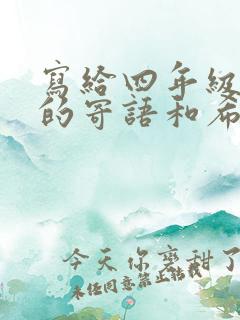 寫給四年級
的寄語和希
今天你變甜了
未任同意禁止轉載